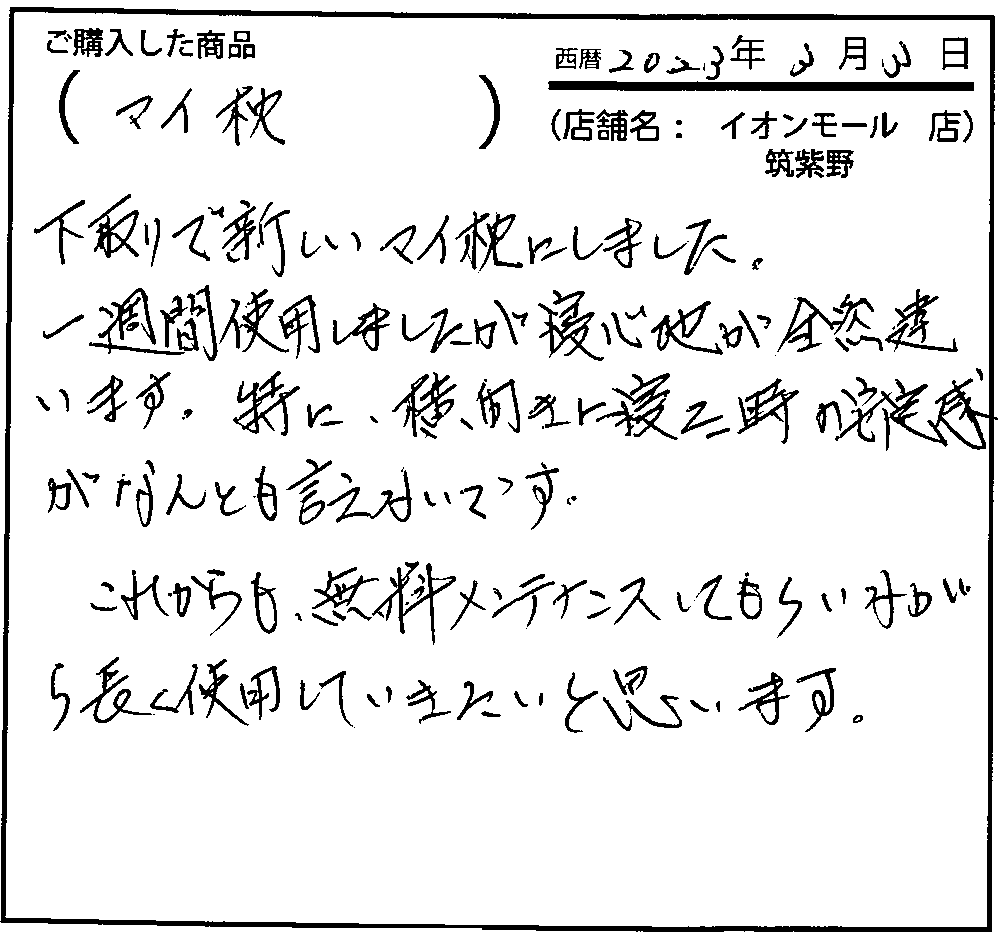 ご購入した商品
(マイ枕)
西暦2023年3月3日
(店舗名: イオンモール 店)
筑紫野
下取りで新しいマイ枕にしました。
一週間使用しましたが寝心地が全然違
います。特に、横向きに寝た時の安定感
がなんとも言えないです。
これからも、無料メンテナンスしてもらいなが
ら長く使用していきたいと思います。